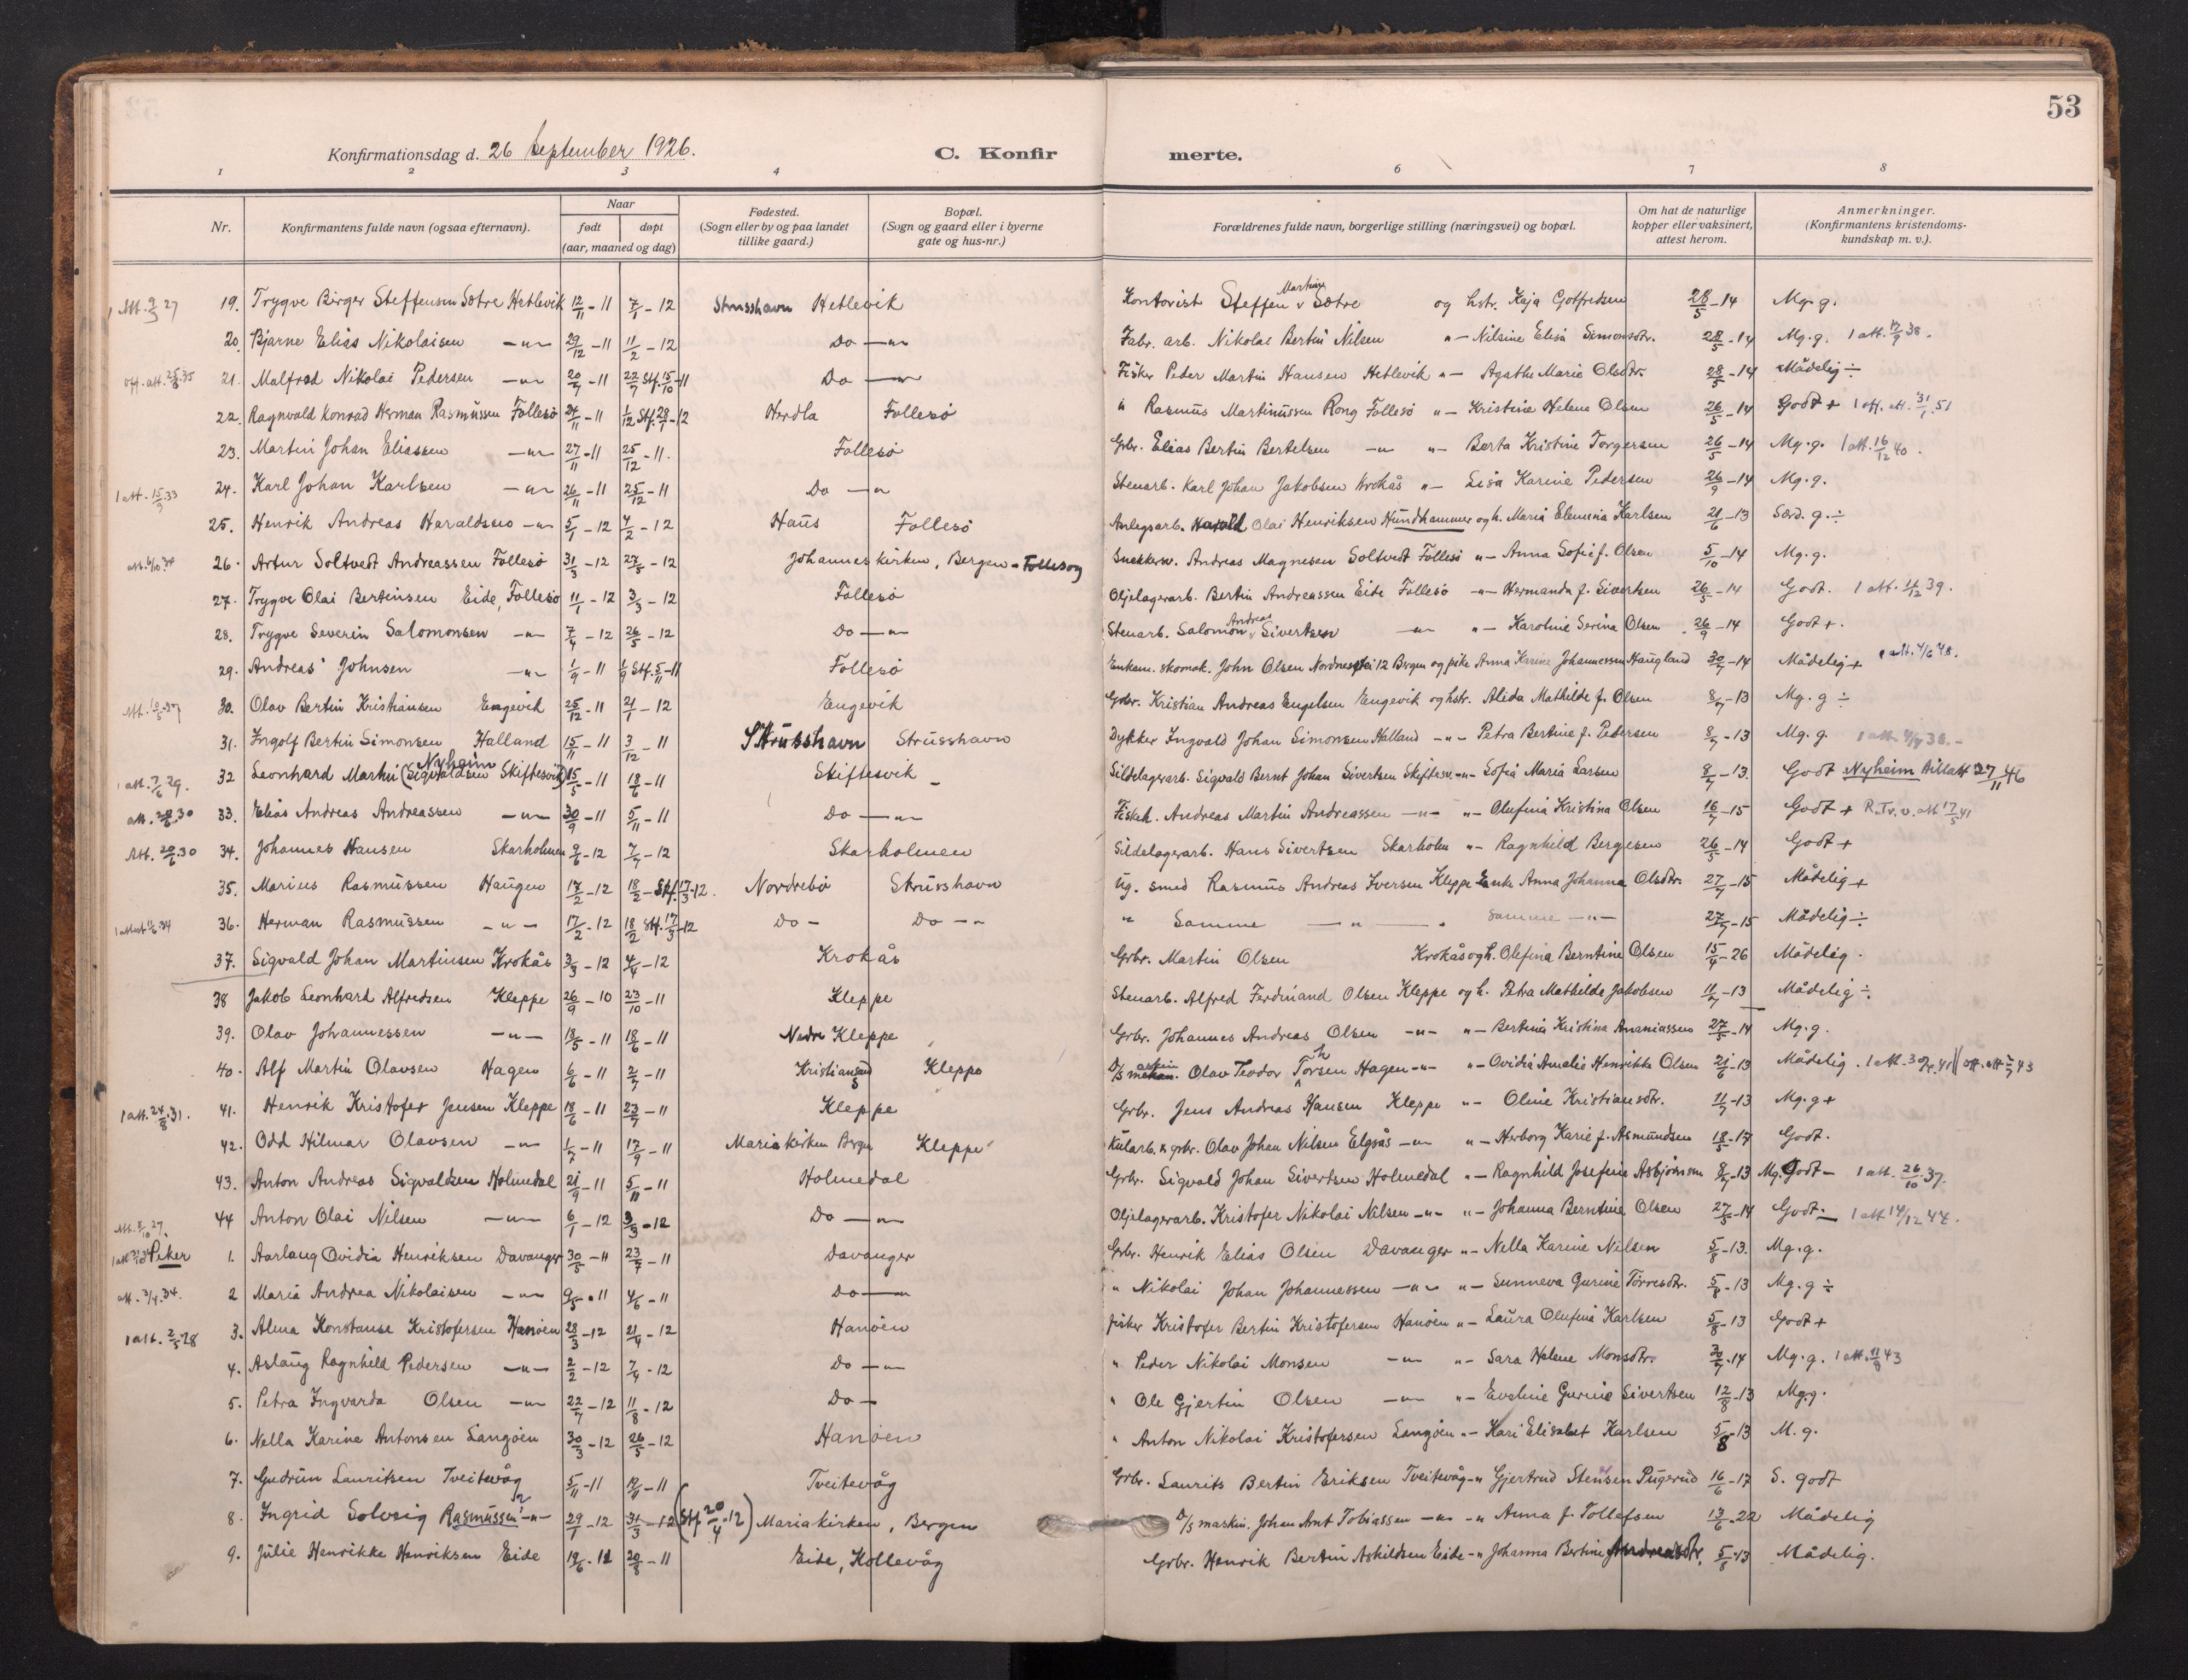 53
Konfirmationsdag d. 26 September 1926. C. Konfir merte.
1 2 3 4 6 7 8
Nr. Konfirmantens fulde navn (ogsaa efternavn). Naar født døpt (aar, maaned og dag) Fødested. (Sogn eller by og paa landet tillike gaard.) Bopæl. (Sogn og gaard eller i byerne gate og hus-nr.) Forældrenes fulde navn, borgerlige stilling (næringsvei) og bopæl. Om hat de naturlige kopper eller vaksinert, attest herom. Anmerkninger. (Konfirmantens kristendoms-kundskap m. v.).
19. Trygve Birger Steffensen Sætre Hetlevik 12/11-11 7/1-12 Strusshavn Hetlevik Kontorist Steffen Martin Sætre og hstr. Kaja Gotfredsen 28/5-14 Mg. g.
20. Bjarne Elias Nikolaisen -"- 29/12-11 11/2-12 Do -"- Fabr. arb. Nikolai Bertin Nilsen "- Nilsine Elisa Simonsdtr. 28/5-14 Mg. g. 1 att. 17/9 38.
off. att. 25/8 35 21. Malfred Nikolai Pedersen -"- 20/7-11 22/7 Stf. 15/10-11 Do -"- Fisker Peder Martin Hansen Hetlevik "- Agathe Marie Olsdtr. 28/5-14 Mådelig ÷
22. Ragnvald Konrad Herman Rasmussen Follesø 24/11-11 1/12 Stf. 28/1-12 Herdla Follesø " Rasmus Martinussen Rong Follesø "- Kristine Helene Olsen 26/5-14 Godt + 1 off. att. 31/1 51
23. Martin Johan Eliassen -"- 27/11-11 25/12-11. Follesø Grbr. Elias Bertin Bertelsen -"- "- Berta Kristine Torgersen 26/5-14 Mg. g. 1 att. 16/12 40.
1 att. 15/9 33 24. Karl Johan Karlsen -"- 26/11-11 25/12-11 Do -"- Stenarb. Karl Johan Jakobsen Krokås "- Lisa Karine Pedersen 26/9-14 Mg. g.
25. Henrik Andreas Haraldsen -"- 5/1-12 4/2-12 Haus Follesø Anlegsarb. Harald Olai Henriksen Hundhammer og h. Maria Karlsen 21/6-13 Særd. g. ÷
att. 6/10 34 26. Artur Soltvedt Andreassen Follesø 31/3-12 27/5-12 Johanneskirken, Bergen - Follesøy Andreas Magnesen Soltvedt Follesø "- Anna Sofie f. Olsen 5/10-14 Mg. g.
27. Trygve Olai Bertinsen Eide, Follesø 11/1-12 3/3-12 Follesø Oljelagerarb. Bertin Andreassen Eide Follesø -"- Hermanda f. Sivertsen 26/5-14 Godt. 1 att. 11/12 39.
28. Trygve Severin Salomonsen -"- 7/4-12 26/5-12 Do -"- Stenarb. Salomon Andreas Sivertsen -"- "- Karoline Serina Olsen 26/9-14 Godt +.
29. Andreas Johnsen -"- 1/9-11 1/9 Stf. 5/11-11 Follesø Enkem. skomak. John Olsen 12 Bergen og pike Anna Karine Johannessen Haugland 30/7-14 Mådelig + att. 4/6 48.
30. Olav Bertin Kristiansen Engevik 25/12-11 21/1-12 Engevik Grbr. Kristian Andreas Engelsen Engevik og hstr. Alida Mathilde f. Olsen 8/7-13 Mg. g ÷
31. Ingolf Bertin Simonsen Halland 15/11-11 3/12-11 Strusshavn Strusshavn Dykker Ingvald Johan Simonsen Halland -"- Petra Bertine f. Pedersen 8/7-13 Mg. g.
1 att. 7/6 29. 32 Leonhard Martin (Sigvaldsen Skiftesvik) Nyheim 15/5-11 18/6-11 Skiftesvik Sildelagerarb. Sigvald Bernt Johan Sivertsen Skiftesv. -"- Sofia Maria Larsen 8/7-13. Godt Nyheim 27/11 46
att. 28/8 30 33. Elias Andreas Andreassen -"- 30/9-11 5/11-11 Do -"- Fiskeh. Andreas Martin Andreassen -"- "- Olufina Kristina Olsen 16/7-15 Godt + R.Tv.v. att 17/5 41
Att. 20/6 30 34. Johannes Hansen Skarholmen 9/6-12 7/7-12 Skarholmen Sildelagerarb. Hans Sivertsen Skarholm "- Ragnhild Bergesen 26/5-14 Godt +
35. Marius Rasmussen Haugen 17/2-12 18/2- Stf. 17/3-12. Nordrebø Strusshavn Ug. smed Rasmus Andreas Iversen Kleppe Enke Anna Johanna Olsdtr. 27/7-15 Mådelig +
36. Herman Rasmussen -"- 17/2-12 18/2 Stf. 17/3-12 Do - Do -"- " Samme -"- samme -"- 27/7-15 Mådelig ÷
37. Sigvald Johan Martinsen Krokås 3/3-12 4/4-12 Krokås Grbr. Martin Olsen Krokås og h. Olefina Berntine Olsen 15/4-26 Mådelig.
38 Jakob Leonhard Alfredsen Kleppe 26/9-10 23/10-11 Kleppe Stenarb. Alfred Ferdinand Olsen Kleppe og h. Petra Mathilde Jakobsen 11/7-13 Mådelig ÷
39. Olav Johannessen -"- 18/5-11 18/6-11 Nedre Kleppe Grbr. Johannes Andreas Olsen -"- "- Bertina Kristina Ananiassen 27/5-14 Mg. g.
40. Alf Martin Olavsen Hagen 6/6-11 2/7-11 Kristiansand S Kleppe D/S maskin. Olav Teodor Thorsen Hagen -"- "- Ovidia Amalie Henrikke Olsen 21/6-13 Mådelig.
1 att. 24/8 31. 41. Henrik Kristofer Jensen Kleppe 18/6-11 23/7-11 Kleppe Grbr. Jens Andreas Hansen Kleppe "- Oline Kristiansdtr. 11/7-13 Mg. g +
42. Odd Hilmar Olavsen -"- 1/7-11 17/9-11 Mariakirken Bergen Kleppe Kularb. & grbr. Olav Johan Nilsen Elgsås -"- "- Herborg Karie f. Asmundsen 18/5-17 Godt.
43. Anton Andreas Sigvaldsen Holmedal 21/9-11 5/11-11 Holmedal Grbr. Sigvald Johan Sivertsen Holmedal "- Ragnhild Josefine Asbjørnsen 8/7-13 Mg. Godt - 1 att. 26/10 37.
44 Anton Olai Nilsen -"- 6/1-12 3/3-12 Do -"- Oljelagerarb. Kristofer Nikolai Nilsen -"- "- Johanna Berntine Olsen 27/5-14 Godt. 1 att 14/12 44.
Piker 1. Aarlaug Ovidia Henriksen Davanger 30/5-11 23/7-11 Davanger Grbr. Henrik Elias Olsen Davanger "- Nella Karine Nilsen 5/8-13. Mg. g.
att. 3/4 34. 2 Maria Andrea Nikolaisen -"- 9/5-11 4/6-11 Do -"- " Nikolai Johan Johannessen -"- "- Sunneva Gurine Torresdtr. 5/8-13 Mg. g ÷
1 att. 2/5 28 3. Alma Konstanse Kristofersen Hanøen 28/3-12 21/4-12 Hanøen fisker Kristofer Bertin Kristofersen Hanøen "- Laura Olufina Karlsen 5/8-13 Godt +
4. Aslaug Ragnhild Pedersen -"- 2/2-12 7/4-12 Do -"- " Peder Nikolai Monsen -"- "- Sara Helene Monsdtr. 30/7-14 Mg. g. 1 att. 11/8 43
5. Petra Ingvarda Olsen -"- 22/7-12 11/8-12 Do - " Ole Gjertin Olsen -"- "- Eveline Gurine Sivertsen 12/8-13 Mg. g.
6. Nella Karine Antonsen Langøen 30/3-12 26/5-12 Hanøen " Anton Nikolai Kristofersen Langøen "- Kari Elisabet Karlsen 5/8-13 M. g.
7. Gudrun Lauritsen Tveitevåg 5/11-11 19/11-11 Tveitevåg Grbr. Laurits Bertin Eriksen Tveitevåg -"- Gjertrud Stensen Pugerud 16/6-17 S. godt
8. Ingrid Solveig Rasmussen -"- 29/1-12 31/3-12 (Stf 20/4-12) Mariakirken, Bergen D/S maskin. Johan Arnt Tobiassen -"- -"- Anna f. Tollefsen 13/6-22 Mådelig
9. Julie Henrikke Henriksen Eide 19/6-11 20/8-11 Eide, Kollevåg Grbr. Henrik Bertin Askildsen Eide -"- Johanna Bertine Andreasdtr. 5/8-13 Mådelig.